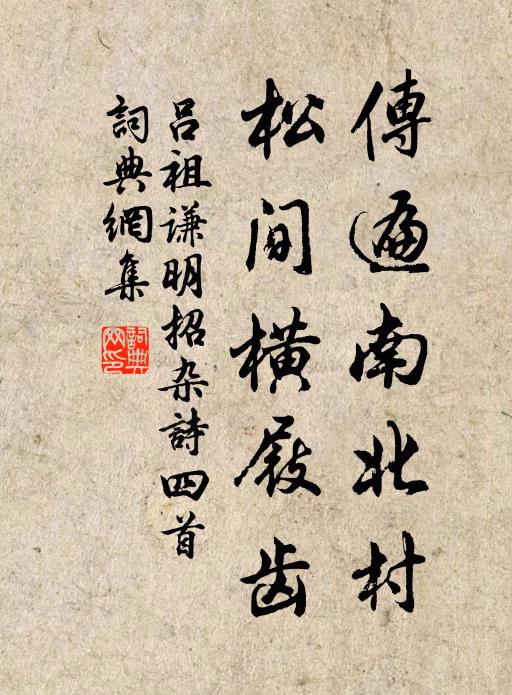 傳遍南北村
松間橫屐齒
吕祖谦明招杂詩四首
詞典網集
詞典
网印